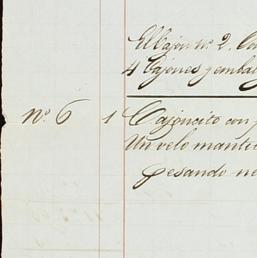 El Cajon nº 2. Co
4 Cajones y embala
Nº 6 1 Cajoncito con
Un velo mante
pesando ne